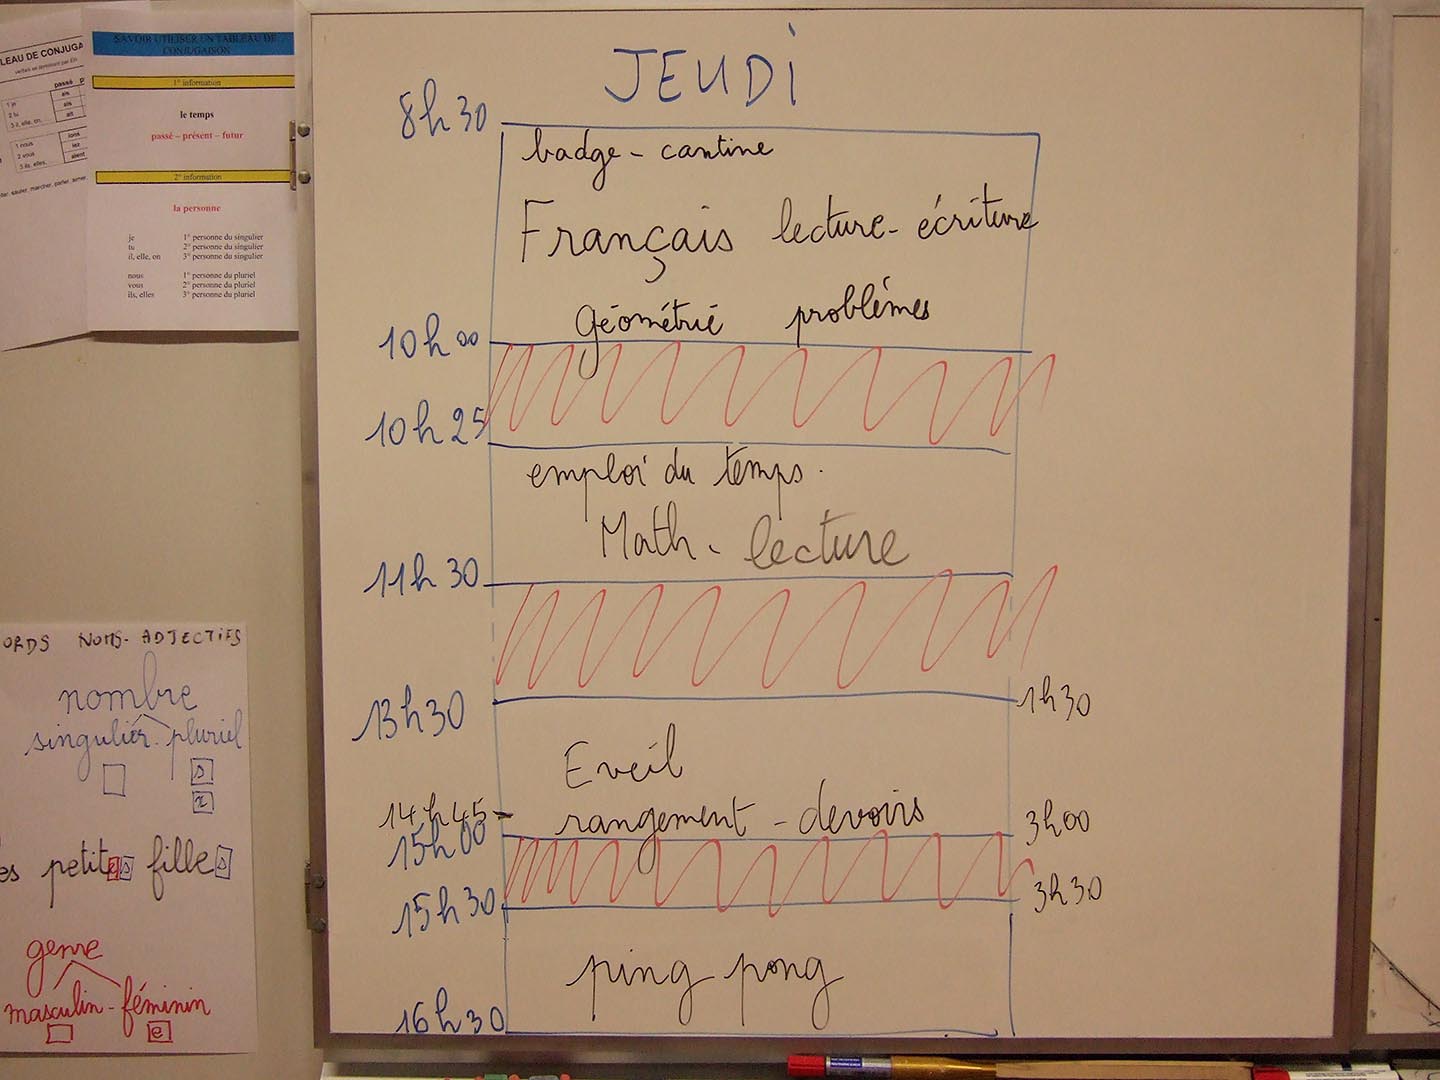 LEAU DE CONJUGA
verbes se terminant par ER
passé
1 je ais
2 tu ais
3 il, elle, on, ait
1 nous ions
2 vous iez
3 ils, elles, aient
sauter, marcher, parler, aimer
SAVOIR UTILISER UN TABLEAU DE
CONJUGAISON
1° information
le temps
passé – présent – futur
2° information
la personne
je 1° personne du singulier
tu 2° personne du singulier
il, elle, on 3° personne du singulier
nous 1° personne du pluriel
vous 2° personne du pluriel
ils, elles 3° personne du pluriel
ORDS NOMS-ADJECTIFS
nombre
singulier - pluriel
s
x
es petites filles
genre
masculin - féminin
e
JEUDI
8h30
badge - cantine
Français lecture - écriture
géométrie problèmes
10h00
10h25
emploi du temps.
Math - lecture
11h30
13h30 1h30
Eveil
14h45 - rangement - devoirs 3h00
15h00
15h30 3h30
ping pong
16h30